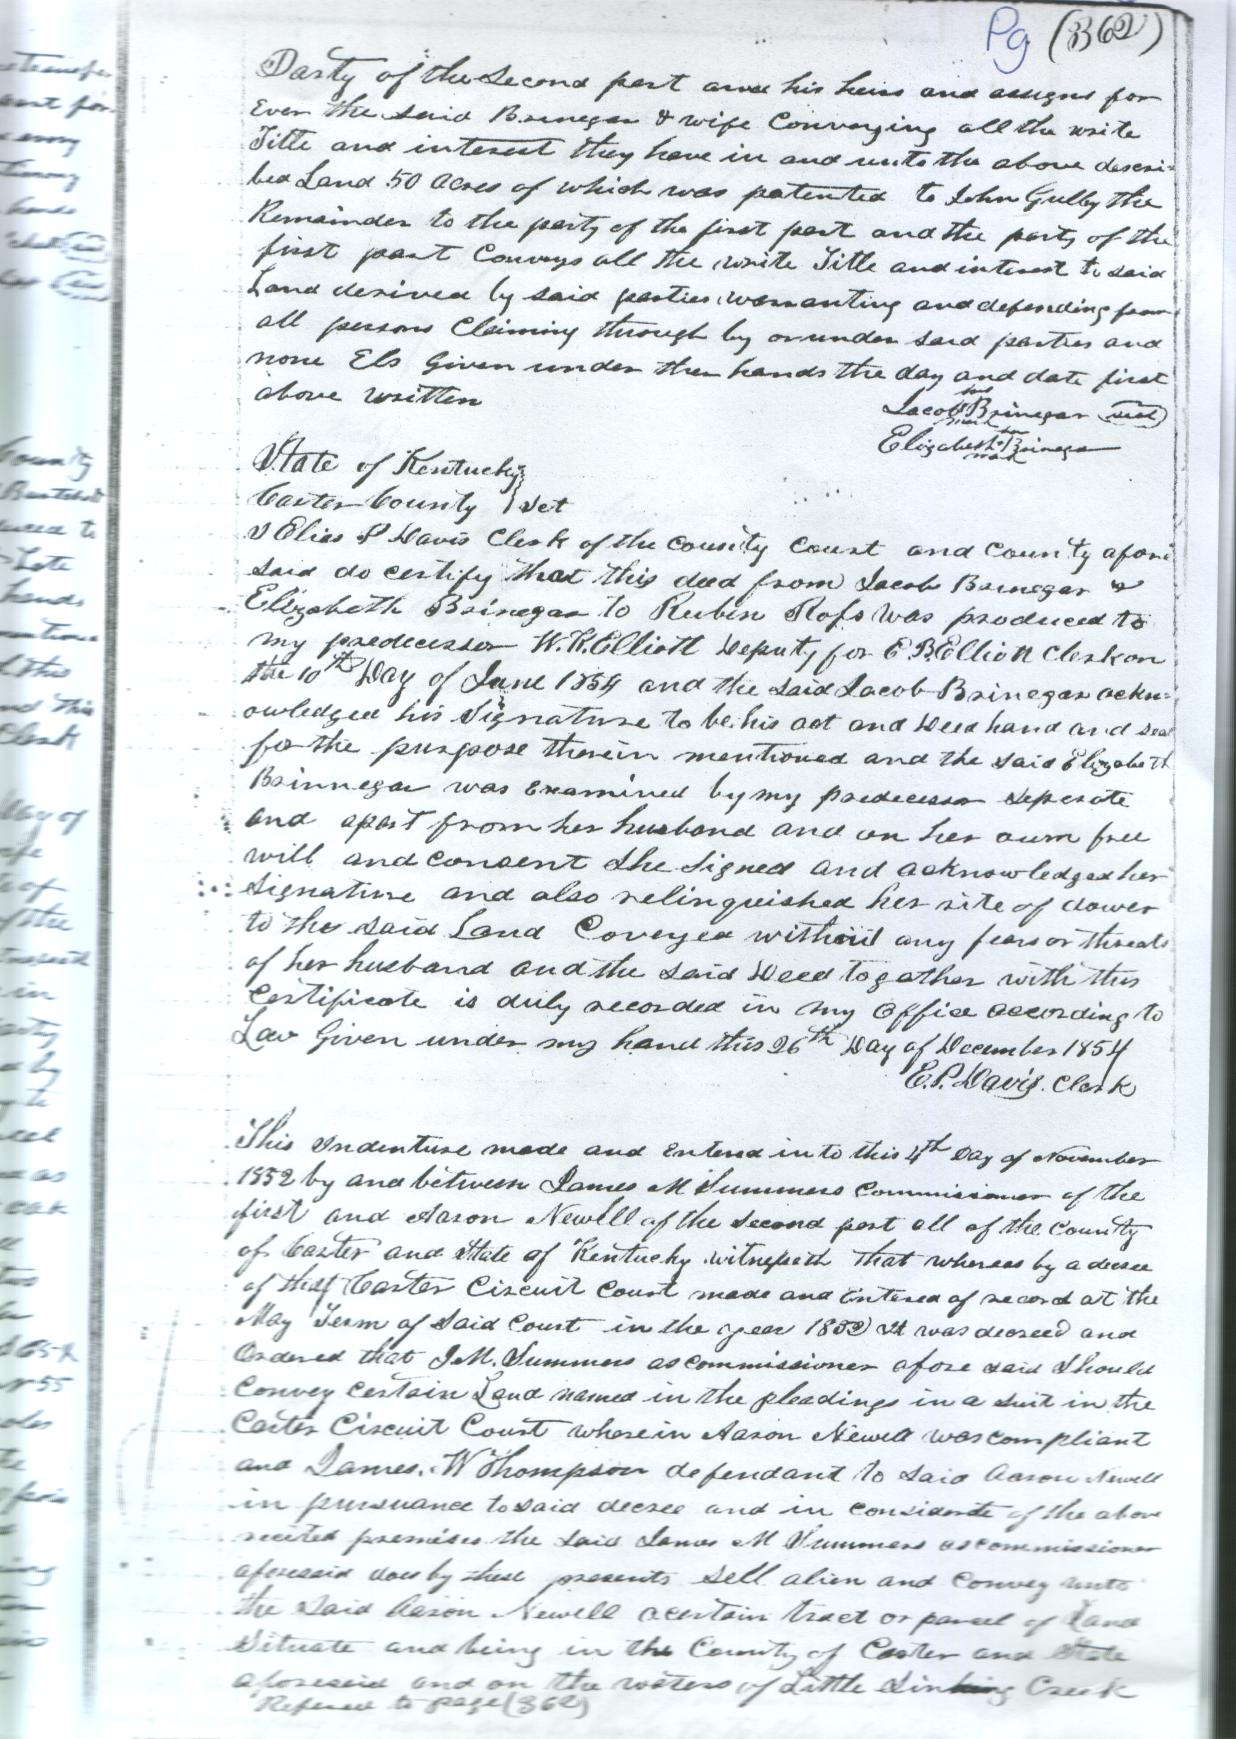 Pg (362)
Party of the Second part and his heirs and assigns for
Ever the said Brinegar & wife Conveying all the write
Title and interest they have in and unto the above descri-
bed Land 50 Acres of which was patented to John Gulley the
Remainder to the party of the first part and the party of the
first part Conveys all the write Title and interest to said
Land derived by said parties warranting and defending from
all persons Claiming through by or under said parties and
none Els Given under ther hands the day and date first
above written
Jacob his mark Brinegar seal
Elizabeth her mark Brinegar
State of Kentucky }
Carter County } Sct
I Elias P Davis Clerk of the County Court and County afore
said do certify that this deed from Jacob Brinegar &
Elizabeth Brinegar to Rubin Rofs was produced to
my predecessor W.K. Elliott Deputy for E.B. Elliott Clerk on
the 10th Day of June 1854 and the said Jacob Brinegar ackn-
owledged his Signature to be his act and Deed hand and seal
for the purpose therein mentioned and the said Elizabeth
Brinnegar was examined by my predecessor seperate
and apart from her husband and on her own free
will and consent she signed and acknowledged her
signature and also relinquished her rite of dower
to the said Land Coveyed without any fears or threats
of her husband and the said Deed together with this
Certificate is duly recorded in my Office according to
Law Given under my hand this 26th Day of December 1854
E.P. Davis. Clerk
This Indenture made and Entered in to this 4th Day of November
1852 by and between James M Summers Commissioner of the
first and Aaron Newell of the second part all of the County
of Carter and State of Kentucky witnefseth that whereas by a decree
of the Carter Circuit Court made and Entered of record at the
May Term of Said Court in the year 1852 it was decreed and
Ordered that J.M. Summers as commissioner afore said Should
Convey certain Land named in the pleadings in a suit in the
Carter Circuit Court wherein Aaron Newell was compliant
and James. W Thompson defendant to said Aaron Newell
in pursuance to said decree and in considerate of the above
recited premises the said James M Summers as commissioner
aforesaid does by these presents sell alien and convey unto
the said Aaron Newell a certain tract or parcel of Land
Situate and being in the County of Carter and State
aforesaid and on the waters of Little Sinking Creek
Refered to page (362)